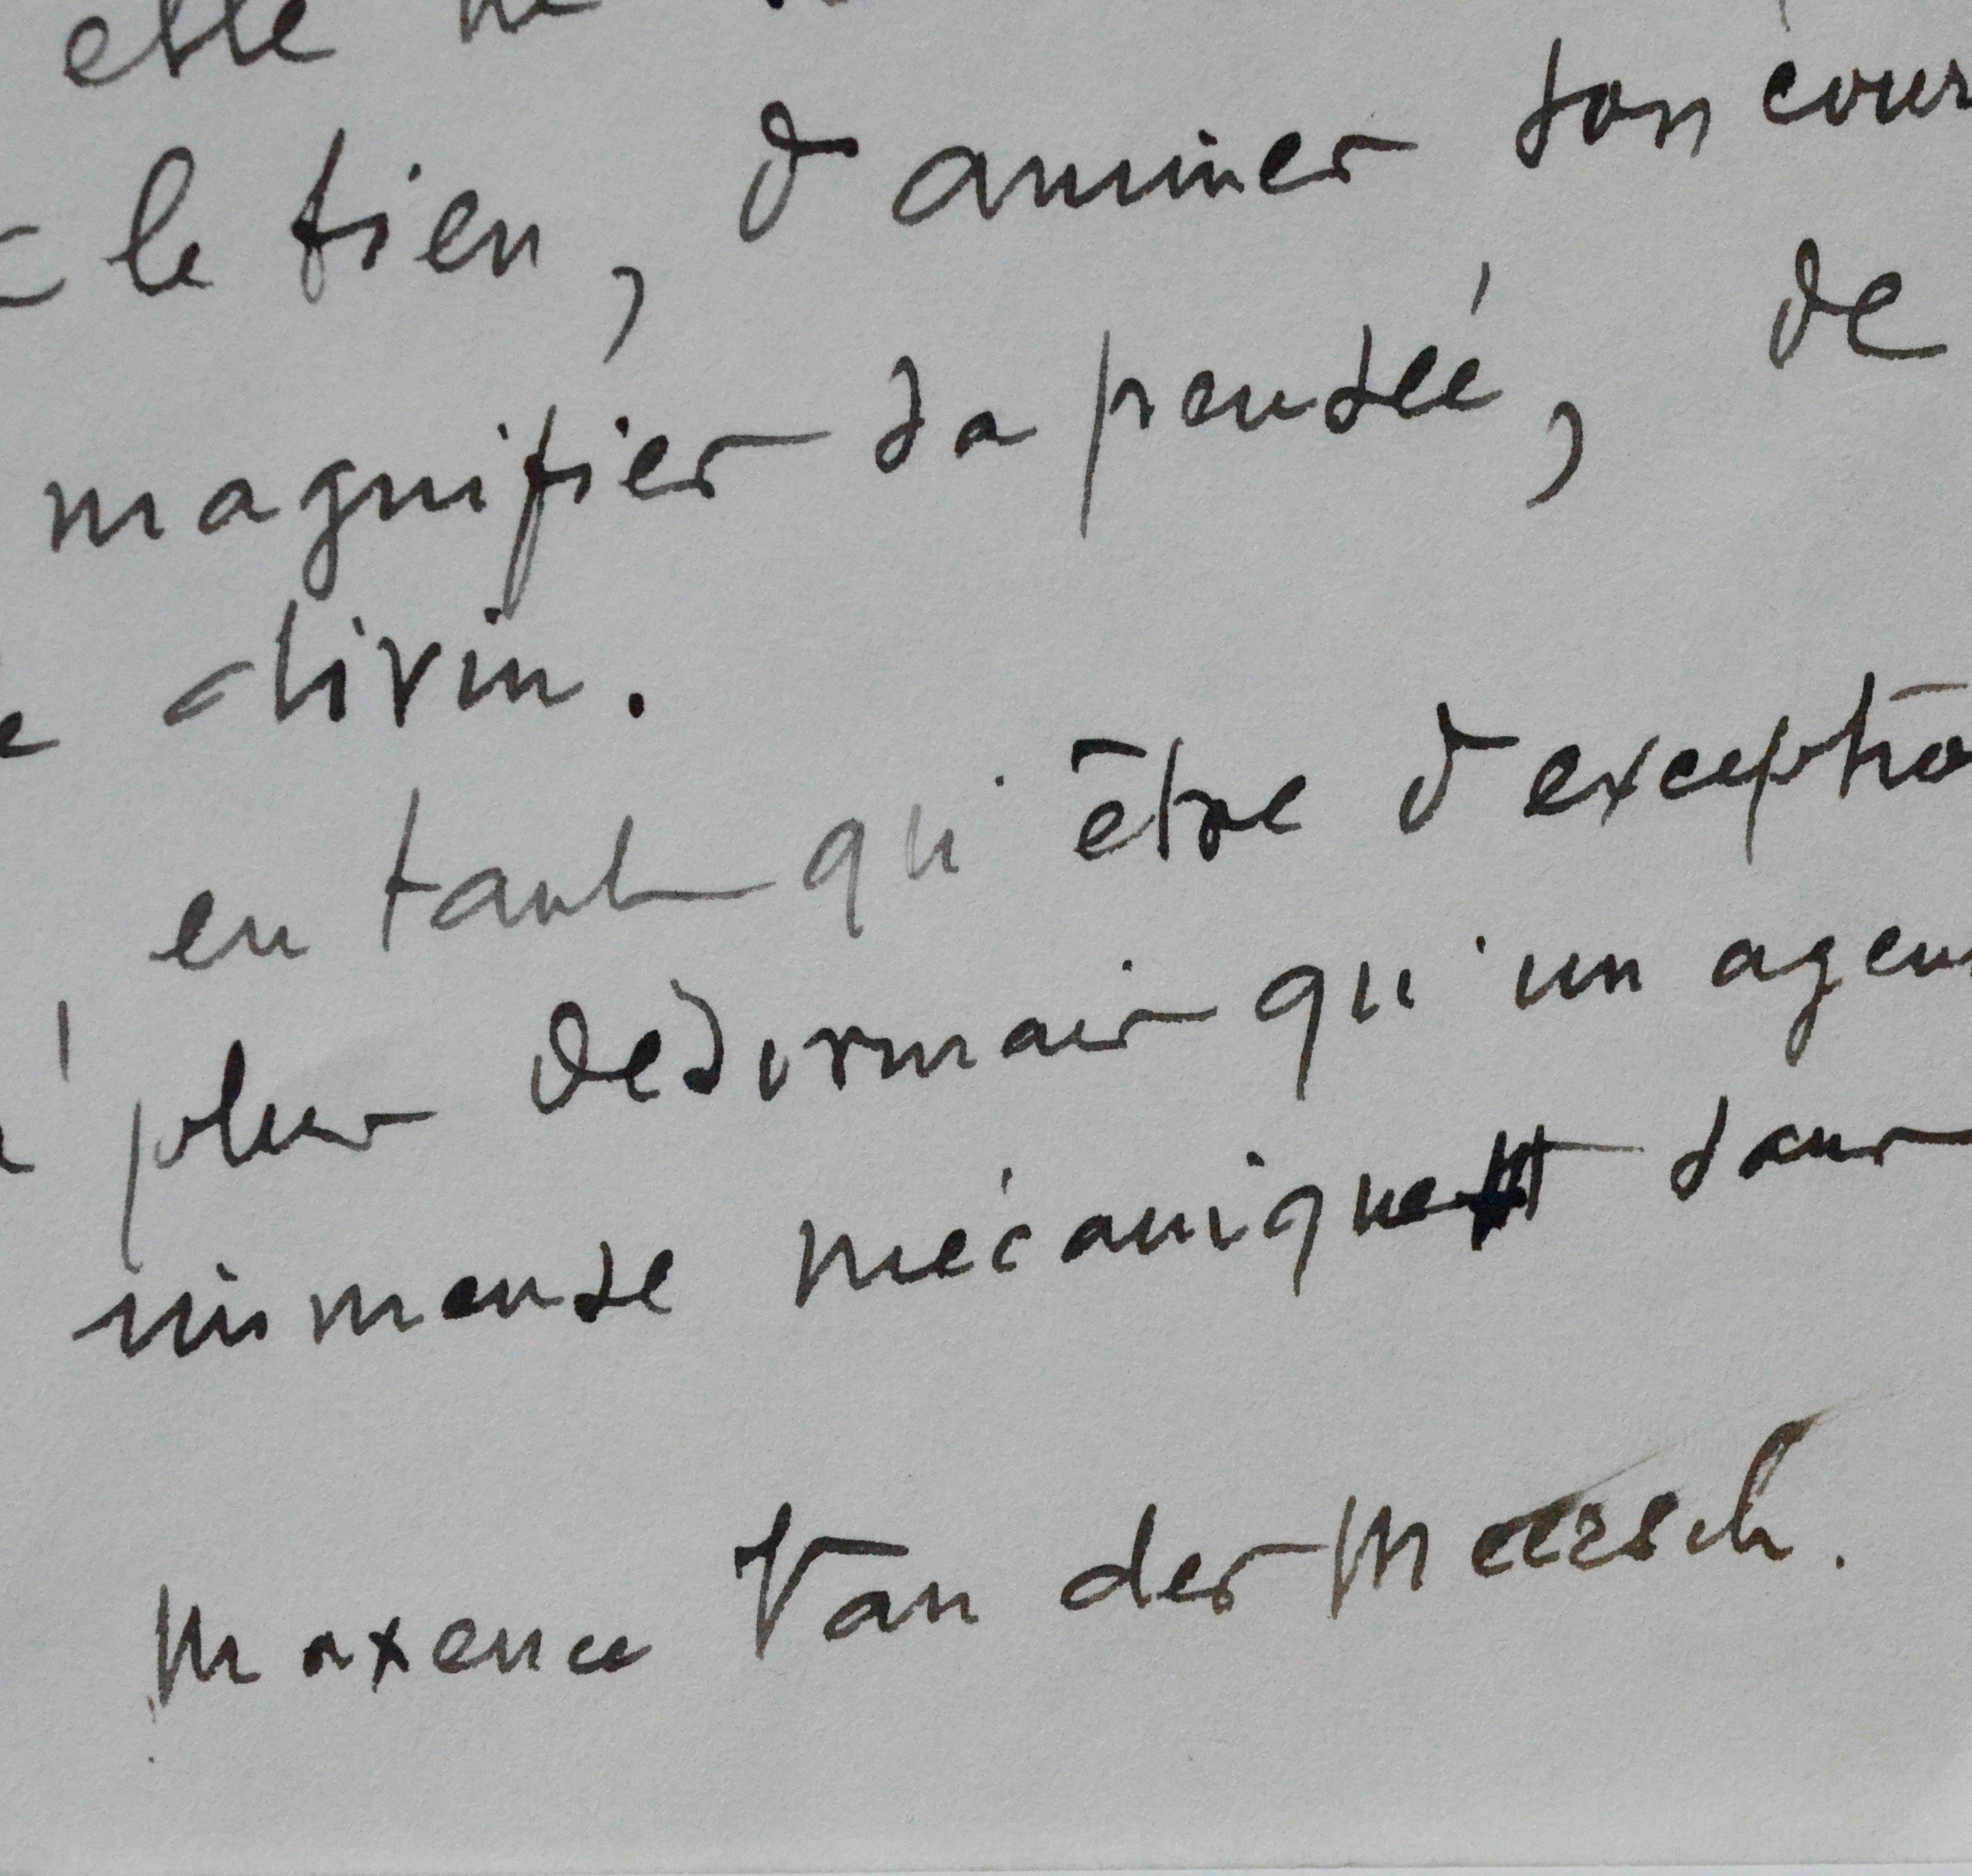 elle ne
le tien, d'animer son cour
magnifier sa pensée, de
divin.
en tant qu'être d'exceptio
plus desormais qu'un agen
immense mécanique sans
Maxence Van der Meersch.